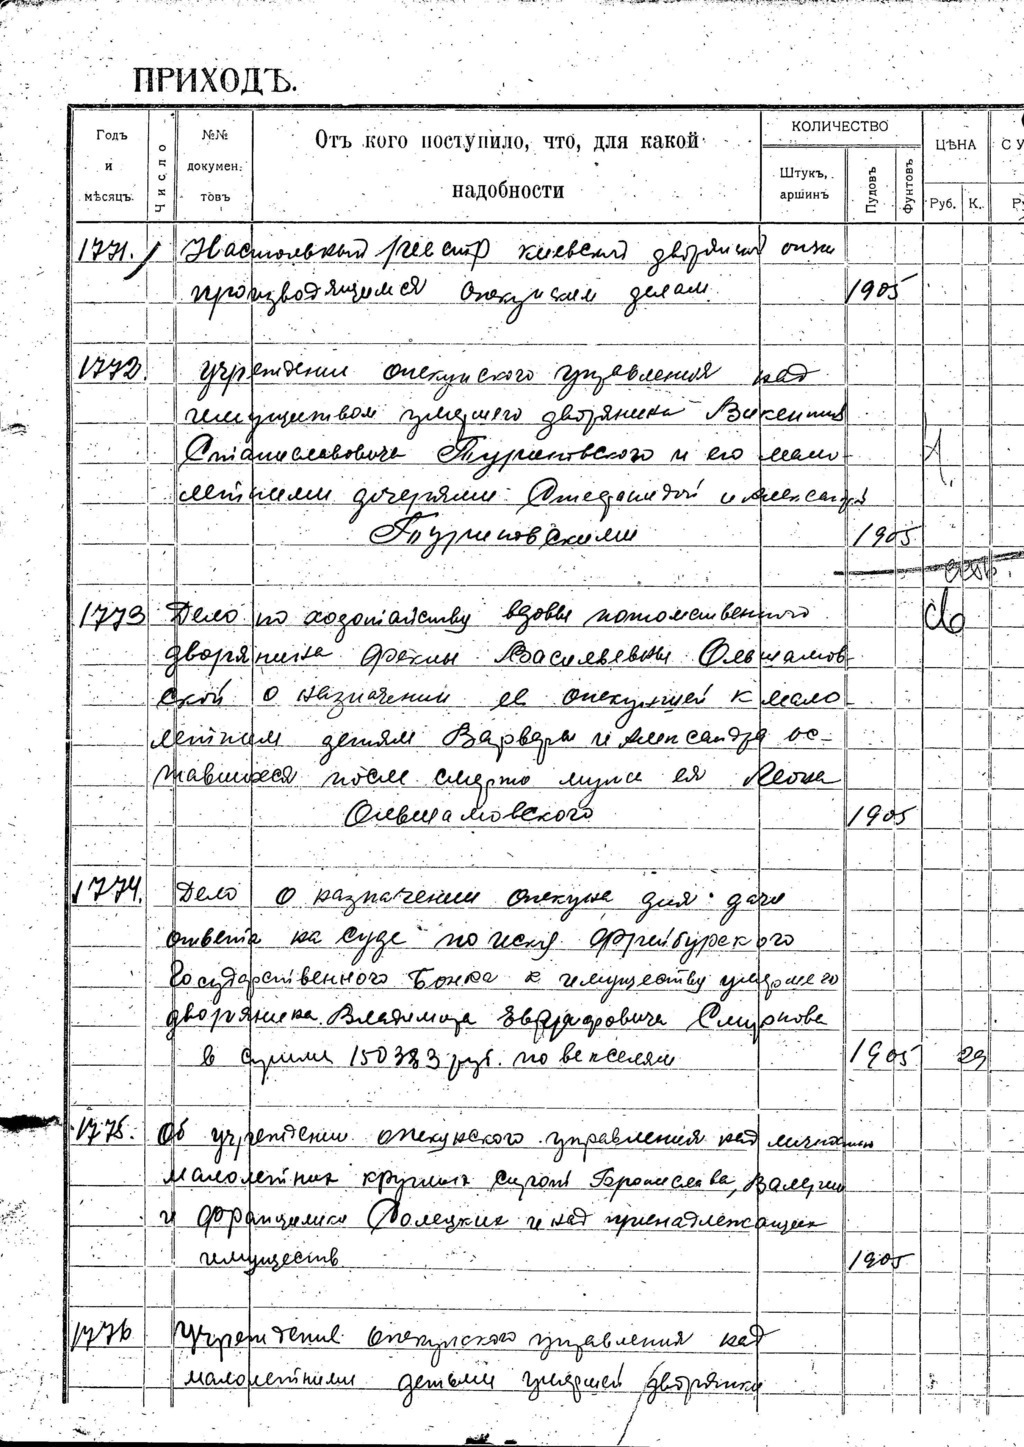 ПРИХОДЪ.
Годъ и мѣсяцъ. Число №№ докумен: товъ Отъ кого поступило, что, для какой надобности КОЛИЧЕСТВО Штукъ, аршинъ Пудовъ Фунтовъ ЦѢНА Руб. К.
1771. Настольный реестр киевской дворянской опеки
производящимся опекунским делам 1905
1772. учреждении опекунского управления над
имуществом умершего дворянина Викентия
Станиславовича и его мало-
летними дочерями Стефанидой и Александрой
1905
1773 Дело по ходотайству вдовы потомственного
дворянина Феклы Васильевны Ольшамов-
ской о назначении ее опекуншей к мало
летним детям Варвары и Александра ос-
тавшихся после смерти мужа ея Леона
Ольшамовского 1905
1774. Дело о назначении опекуна для дачи
ответа на суде по иску Фрейбурского
Государственного Банка к имуществу умершего
дворянина Владимира Евграфовича Смирнова
в сумме 150383 руб. по векселям 1905 29
1775. Об учреждении опекунского управления над личностью
малолетних круглых сирот Бронислава, Валерии
и Францишки и над принадлежащих
имуществ 1905
1776 Учреждение опекунского управления над
малолетними детьми умершей дворянки